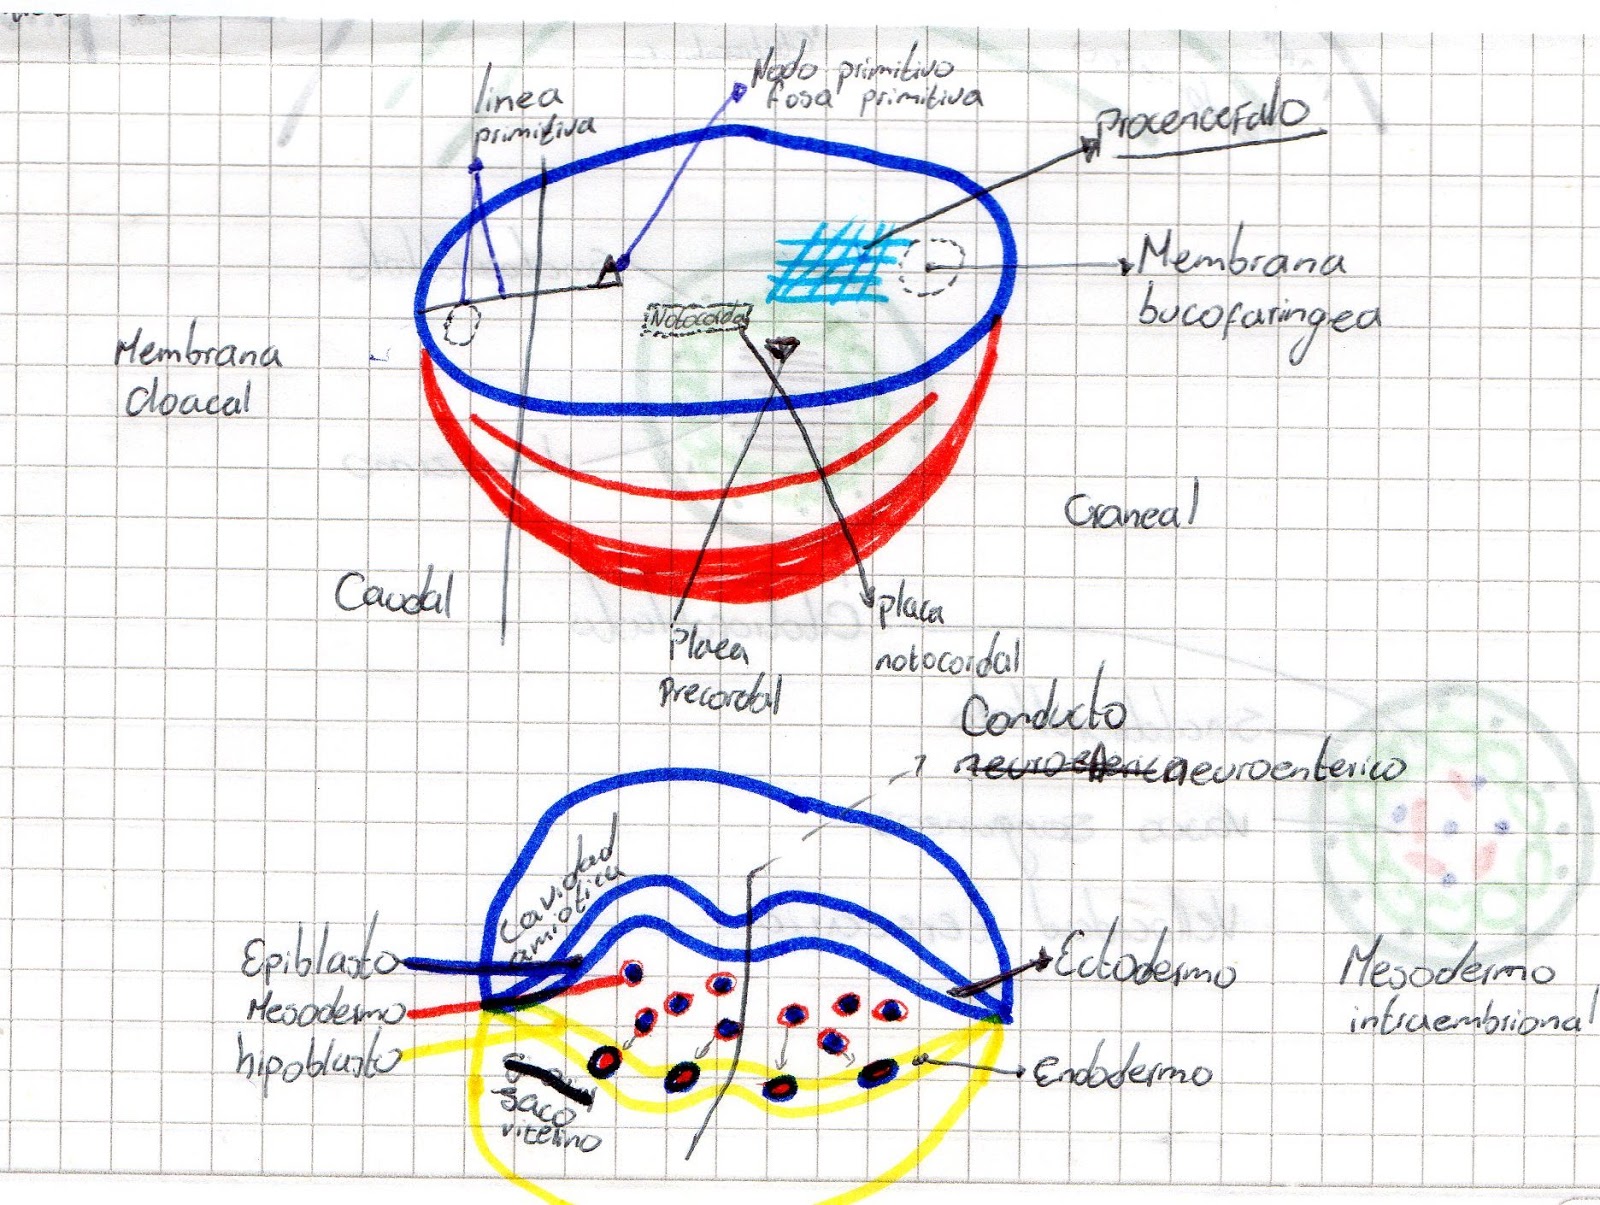 linea
primitiva
Nodo primitivo
fosa primitiva
Procencefalo
Membrana
bucofaringea
Notocorda
Membrana
cloacal
Craneal
Caudal
Placa
Precordal
placa
notocordal
Conducto
neuroenterico
Cavidad
amiotica
Epiblasto
Mesodermo
hipoblasto
Ectodermo
Mesodermo
intraembrional
Endodermo
Saco
vitelino